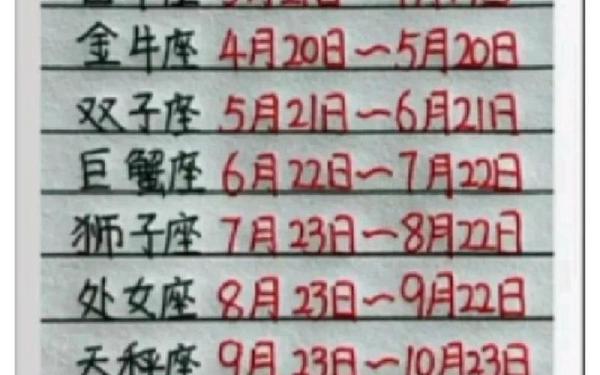 金牛座 4月20日～5月20日
双子座 5月21日～6月21日
巨蟹座 6月22日～7月22日
狮子座 7月23日～8月22日
处女座 8月23日～9月22日
天秤座 9月23日～10月23日